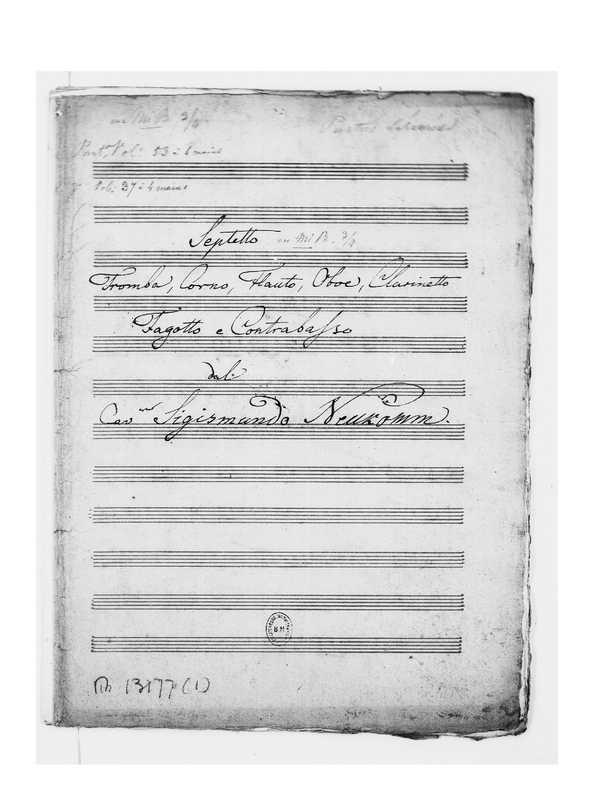 en Mi B 3/4
Parties séparées
Part. Vol. 53 à 1 mains
Vol. 37 à 4 mains
Septetto en Mi B. 3/4
Tromba, Corno, Flauto, Oboe, Clarinetto
Fagotto e Contrabasso
dal
Cavre Sigismundo Neukomm.
B.M
Rh 13177 (1)